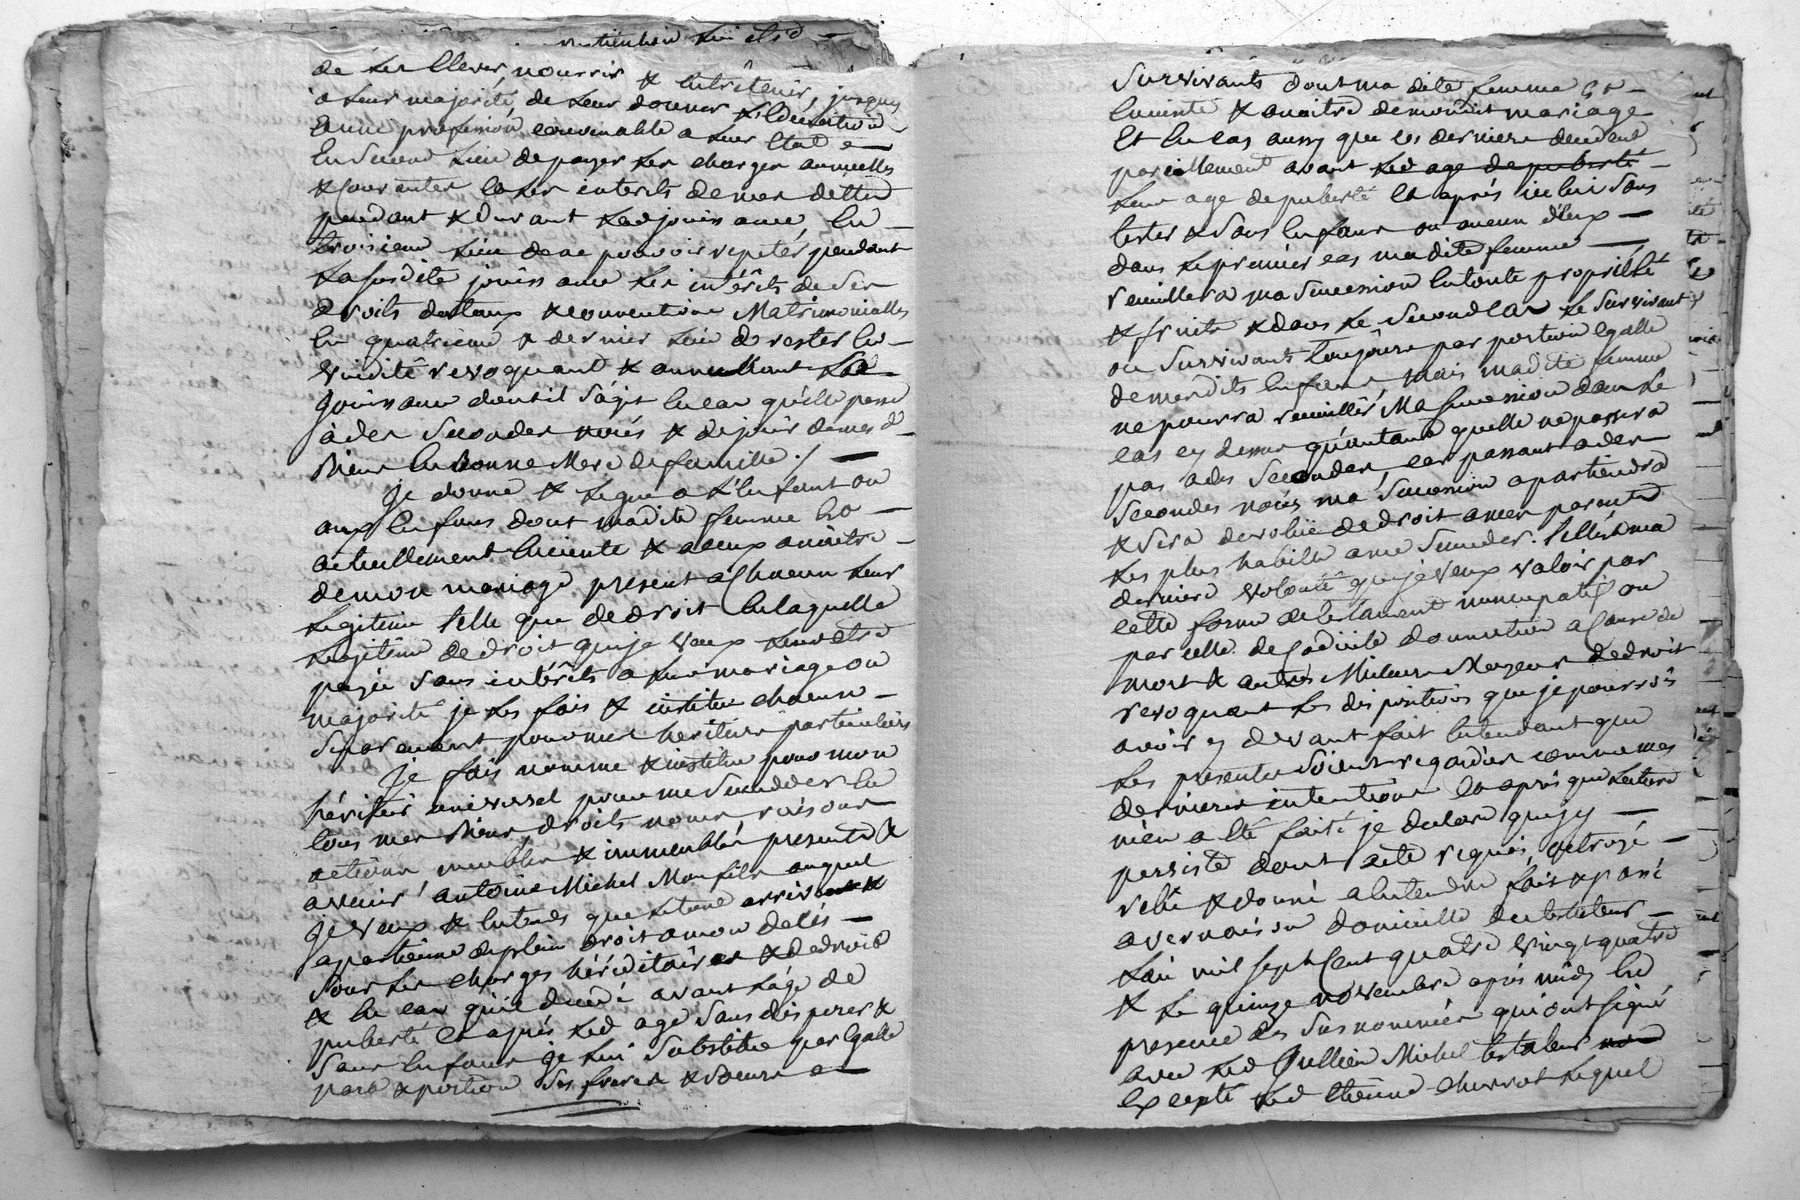 institution lui etre
de les Elever, nourrir & Entretenir, jusques
a leur majorité, de leur donner l'Education
Et une profession convenable a leur Etat
En Second Lieu de payer les charges annuelles
& Courantes Et les interets de mes dettes
pendant & Durant lad jouissance, En
troisieme Lieu de ne pouvoir repeter pendant
La susdite jouissance les intérêts de Ses
droits dotaux & conventions Matrimonialles
En quatrieme & dernier Lieu de rester En
viduité revoquant & annullant lad
Jouissance dont il s'agit En cas qu'elle passe
à des Secondes nôces & de jouir de mesd
Biens En bonne Mere de famille ./
Je donne & Legue a L'Enfant ou
aux Enfans dont madite femme Est
actuellement Enceinte & a ceux a naitre
de mon mariage present a Chacun Leur
Legitime telle que de droit En laquelle
Legitime de droit que je veux Leur etre
payée Sans intérêts a Leur mariage ou
majorité je Les fais & institue chacun
Separement pour mes heritiers particuliers
Je fais nomme & institue pour mon
héritier universel pour me Succeder En
tous mes Biens, droits noms raisons
actions meubles & immeubles presents &
avenir antoine Michel Mon fils auquel
Je veux & Entends que Le tout arrive &
apartienne de plein droit a mon décés
Sous Les charges héréditaires & de droit
& En cas qu'il decede avant L'age de
puberté Et après led age Sans disposer &
Sans Enfans Je Lui Substitue par Egale
part & portion Ses freres & Soeurs
Survivants dont ma dite femme Est
Enceinte & a naitre de mondit mariage
Et En cas aussy que ces derniers decedent
pareillement avant led age de puberté
Leur age de puberté Et après icelui Sans
tester & Sans Enfans ou aucun d'Eux
dans Le premier cas madite femme
recueillera ma Succession En toute proprieté
& fruits & dans Le Second Cas Le Survivant
ou Survivants Toujours par portion Egalle
de mesdits Enfans, mais madite femme
ne pourra recueillir, Ma Succession dans Le
cas cy dessus qu'autant quelle ne passera
pas a des Secondes, car passant a des
Secondes nôces ma Succession apartiendra
& Sera devolüe de droit a mes parents
Les plus habilles a me Succeder. telle Est ma
derniere volonté que je veux valoir par
cette forme de testament nuncupatif ou
par celle de Codicile donnation a Cause de
mort & autres Milleurs Moyens de droit
revoquant Les dispositions que je pourrois
avoir cy devant fait Entendant que
Les presentes Soient regardées comme mes
dernieres intentions Et après que Lecture
m'en a Eté faite je declare que j'y
persiste dont acte requis, octroyé
& donné a Entendre fait & passé
a vernoison domicille du testateur
L'an mil Sept Cent quatre vingt quatre
& Le quinze novembre après midy En
presence des Susnommés qui ont Signé
avec Led Jullien Michel testateur
Excepté Led Etienne Charrot Lequel